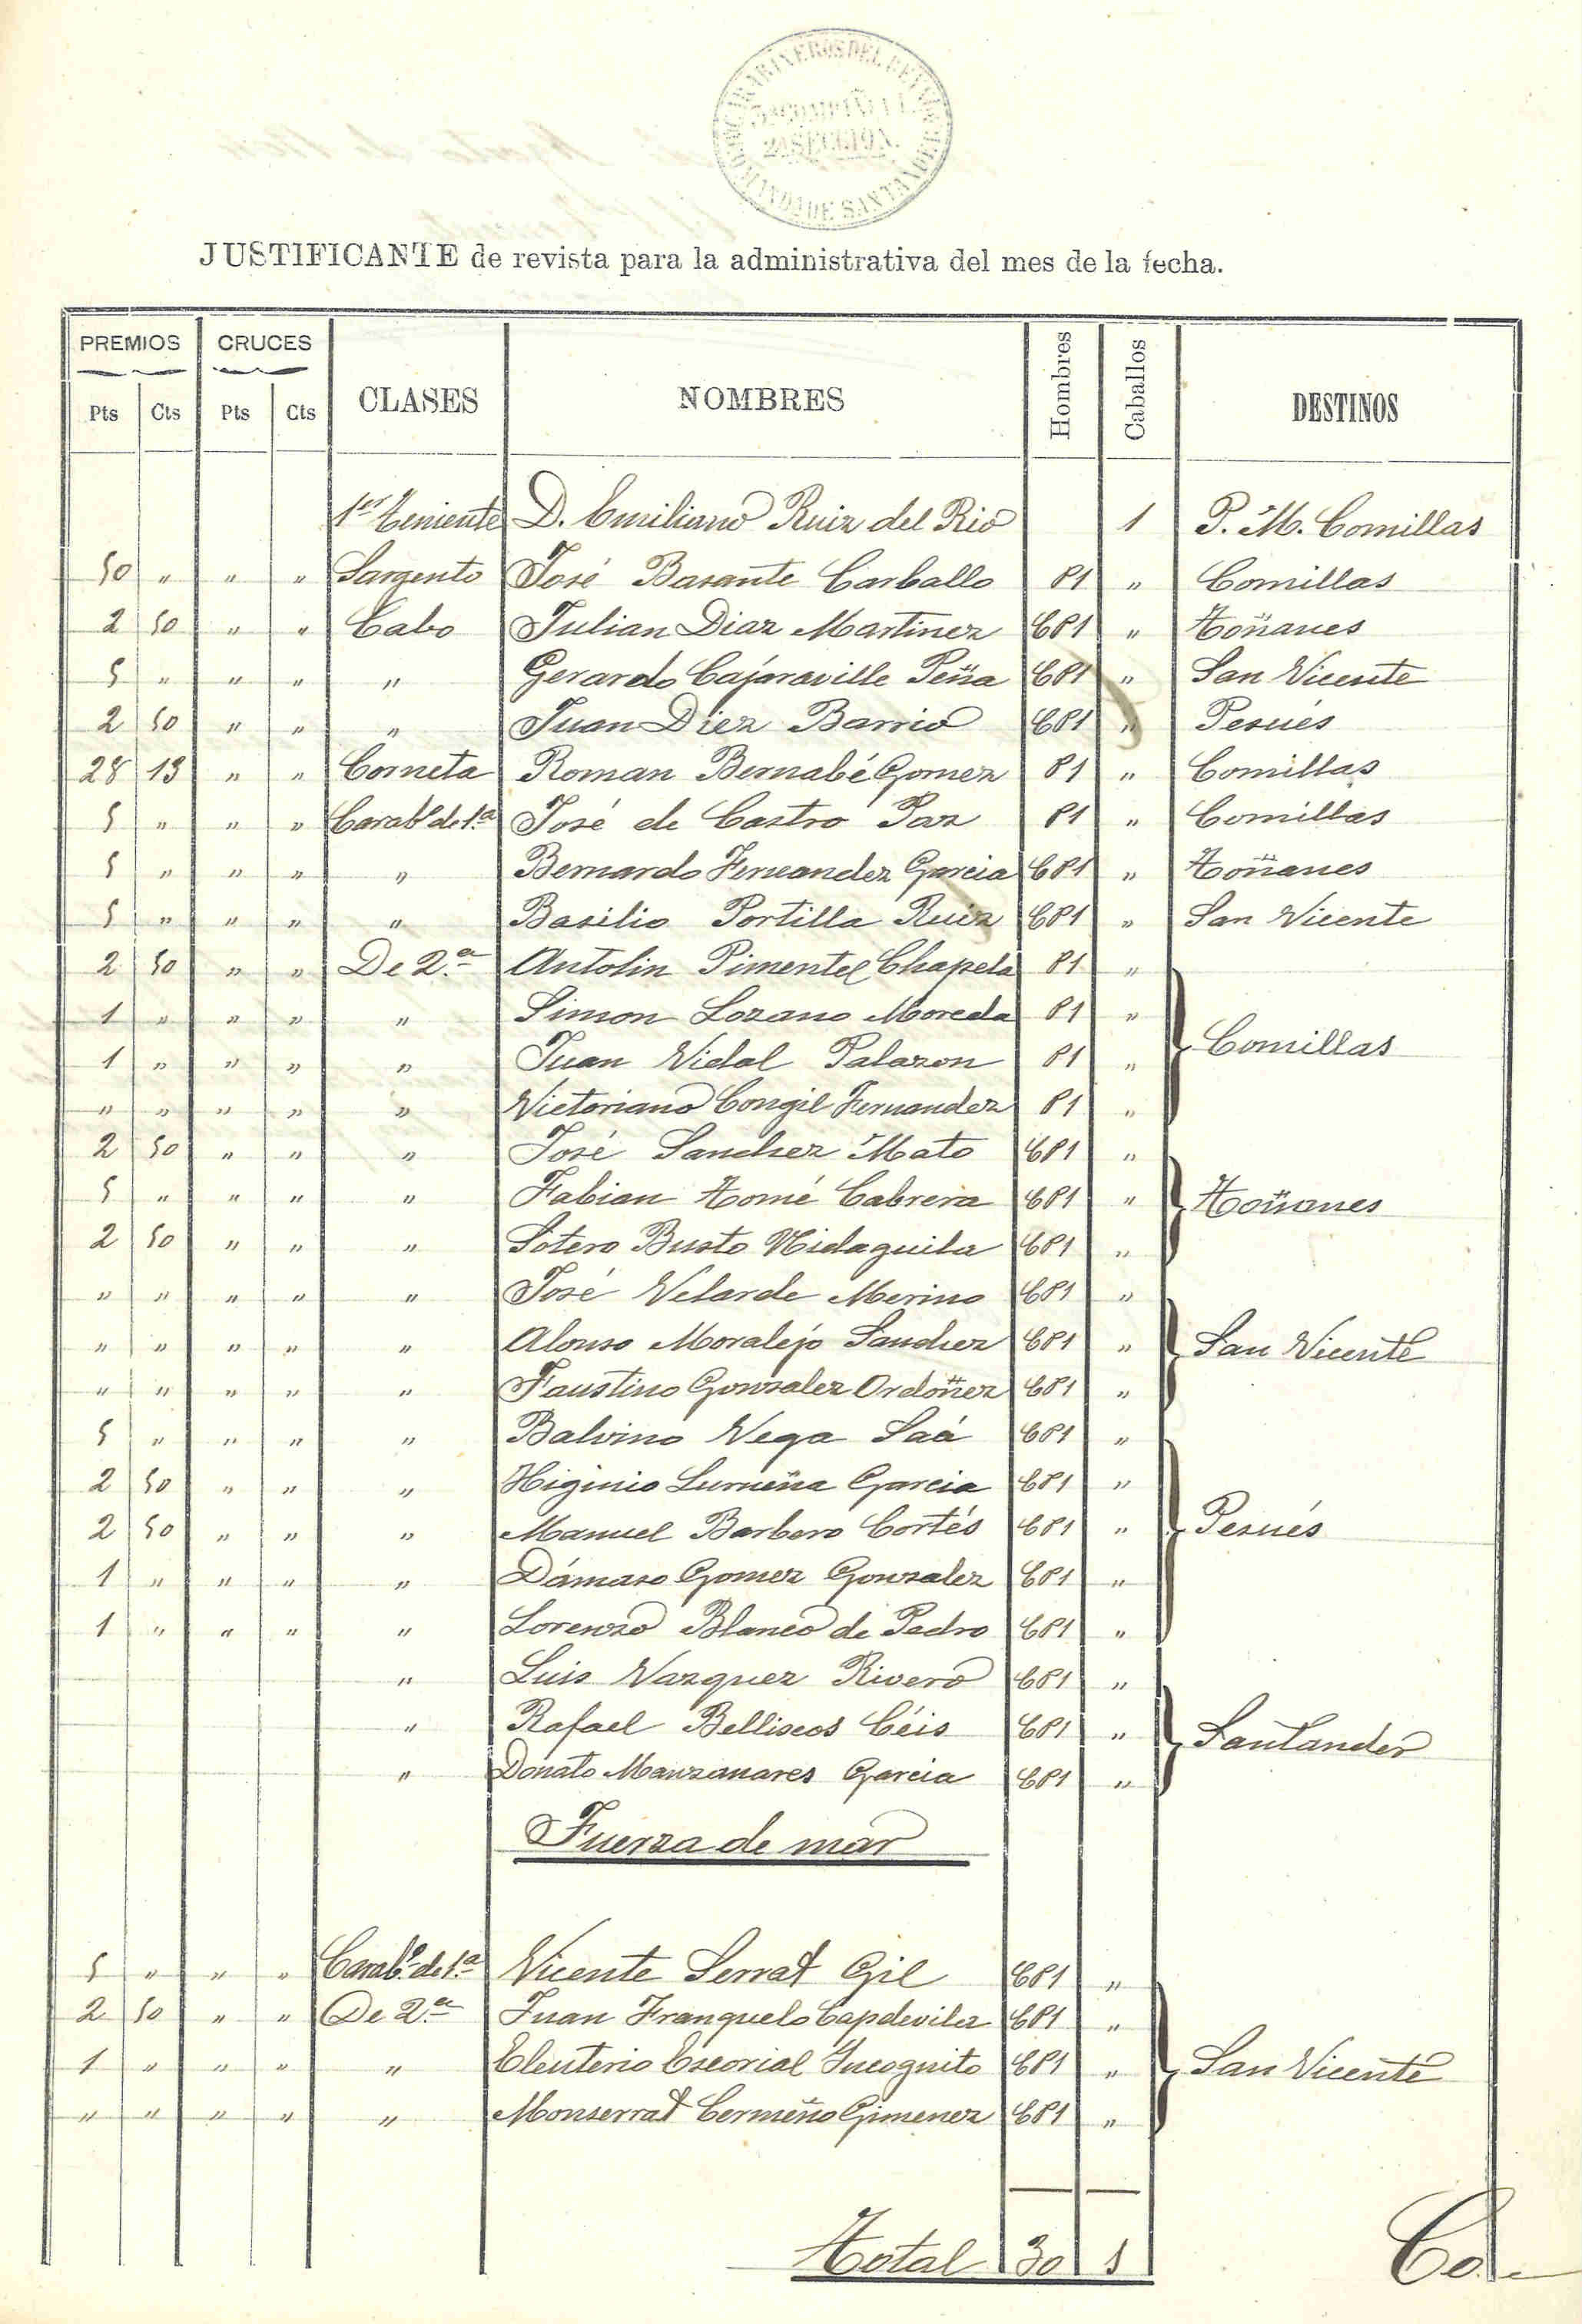 CARABINEROS DEL REINO
COMANDª DE SANTANDER
COMPAÑIA
2ª SECCIÓN.
JUSTIFICANTE de revista para la administrativa del mes de la fecha.
PREMIOS CRUCES CLASES NOMBRES Hombres Caballos DESTINOS
Pts Cts Pts Cts
1er Teniente D. Emiliano Ruiz del Rio 1 P. M. Comillas
50 " " " Sargento José Basante Carballo P1 " Comillas
2 50 " " Cabo Julian Diaz Martinez CP1 " Toñanes
5 " " " " Gerardo Cajaraville Peña CP1 " San Vicente
2 50 " " " Juan Diez Barrio CP1 " Pesués
28 13 " " Corneta Roman Bernabé Gomez P1 " Comillas
5 " " " Carabº de 1.ª José de Castro Paz P1 " Comillas
5 " " " " Bernardo Fernandez Garcia CP1 " Toñanes
5 " " " " Basilio Portilla Ruiz CP1 " San Vicente
2 50 " " De 2.ª Antolin Pimentel Chapela P1 "
1 " " " " Simon Lozano Moreda P1 "
Comillas
1 " " " " Juan Vidal Palazon P1 "
" " " " " Victoriano Congil Fernandez P1 "
2 50 " " " José Sanchez Mato CP1 "
5 " " " " Fabian Tomé Cabrera CP1 " Toñanes
2 50 " " " Sotero Busto Vidaguila CP1 "
" " " " " José Velarde Merino CP1 "
" " " " " Alonso Moralejo Sanchez CP1 " San Vicente
" " " " " Faustino Gonzalez Ordoñez CP1 "
5 " " " " Balvino Vega Saá CP1 "
2 50 " " " Higinio Lumeña Garcia CP1 "
2 50 " " " Manuel Barbero Cortés CP1 " Pesués
1 " " " " Dámaso Gomez Gonzalez CP1 "
1 " " " " Lorenzo Blanco de Pedro CP1 "
" Luis Vazquez Rivero CP1 "
" Rafael Belliscos Céis CP1 " Santander
" Donato Manzanares Garcia CP1 "
Fuerza de mar
5 " " " Carabº de 1.ª Vicente Serrat Gil CP1 "
2 50 " " De 2.ª Juan Franquelo Capdevila CP1 "
1 " " " " Eleuterio Escorial Incognito CP1 " San Vicente
" " " " " Monserrat Cermeño Gimenez CP1 "
Total 30 1
Co